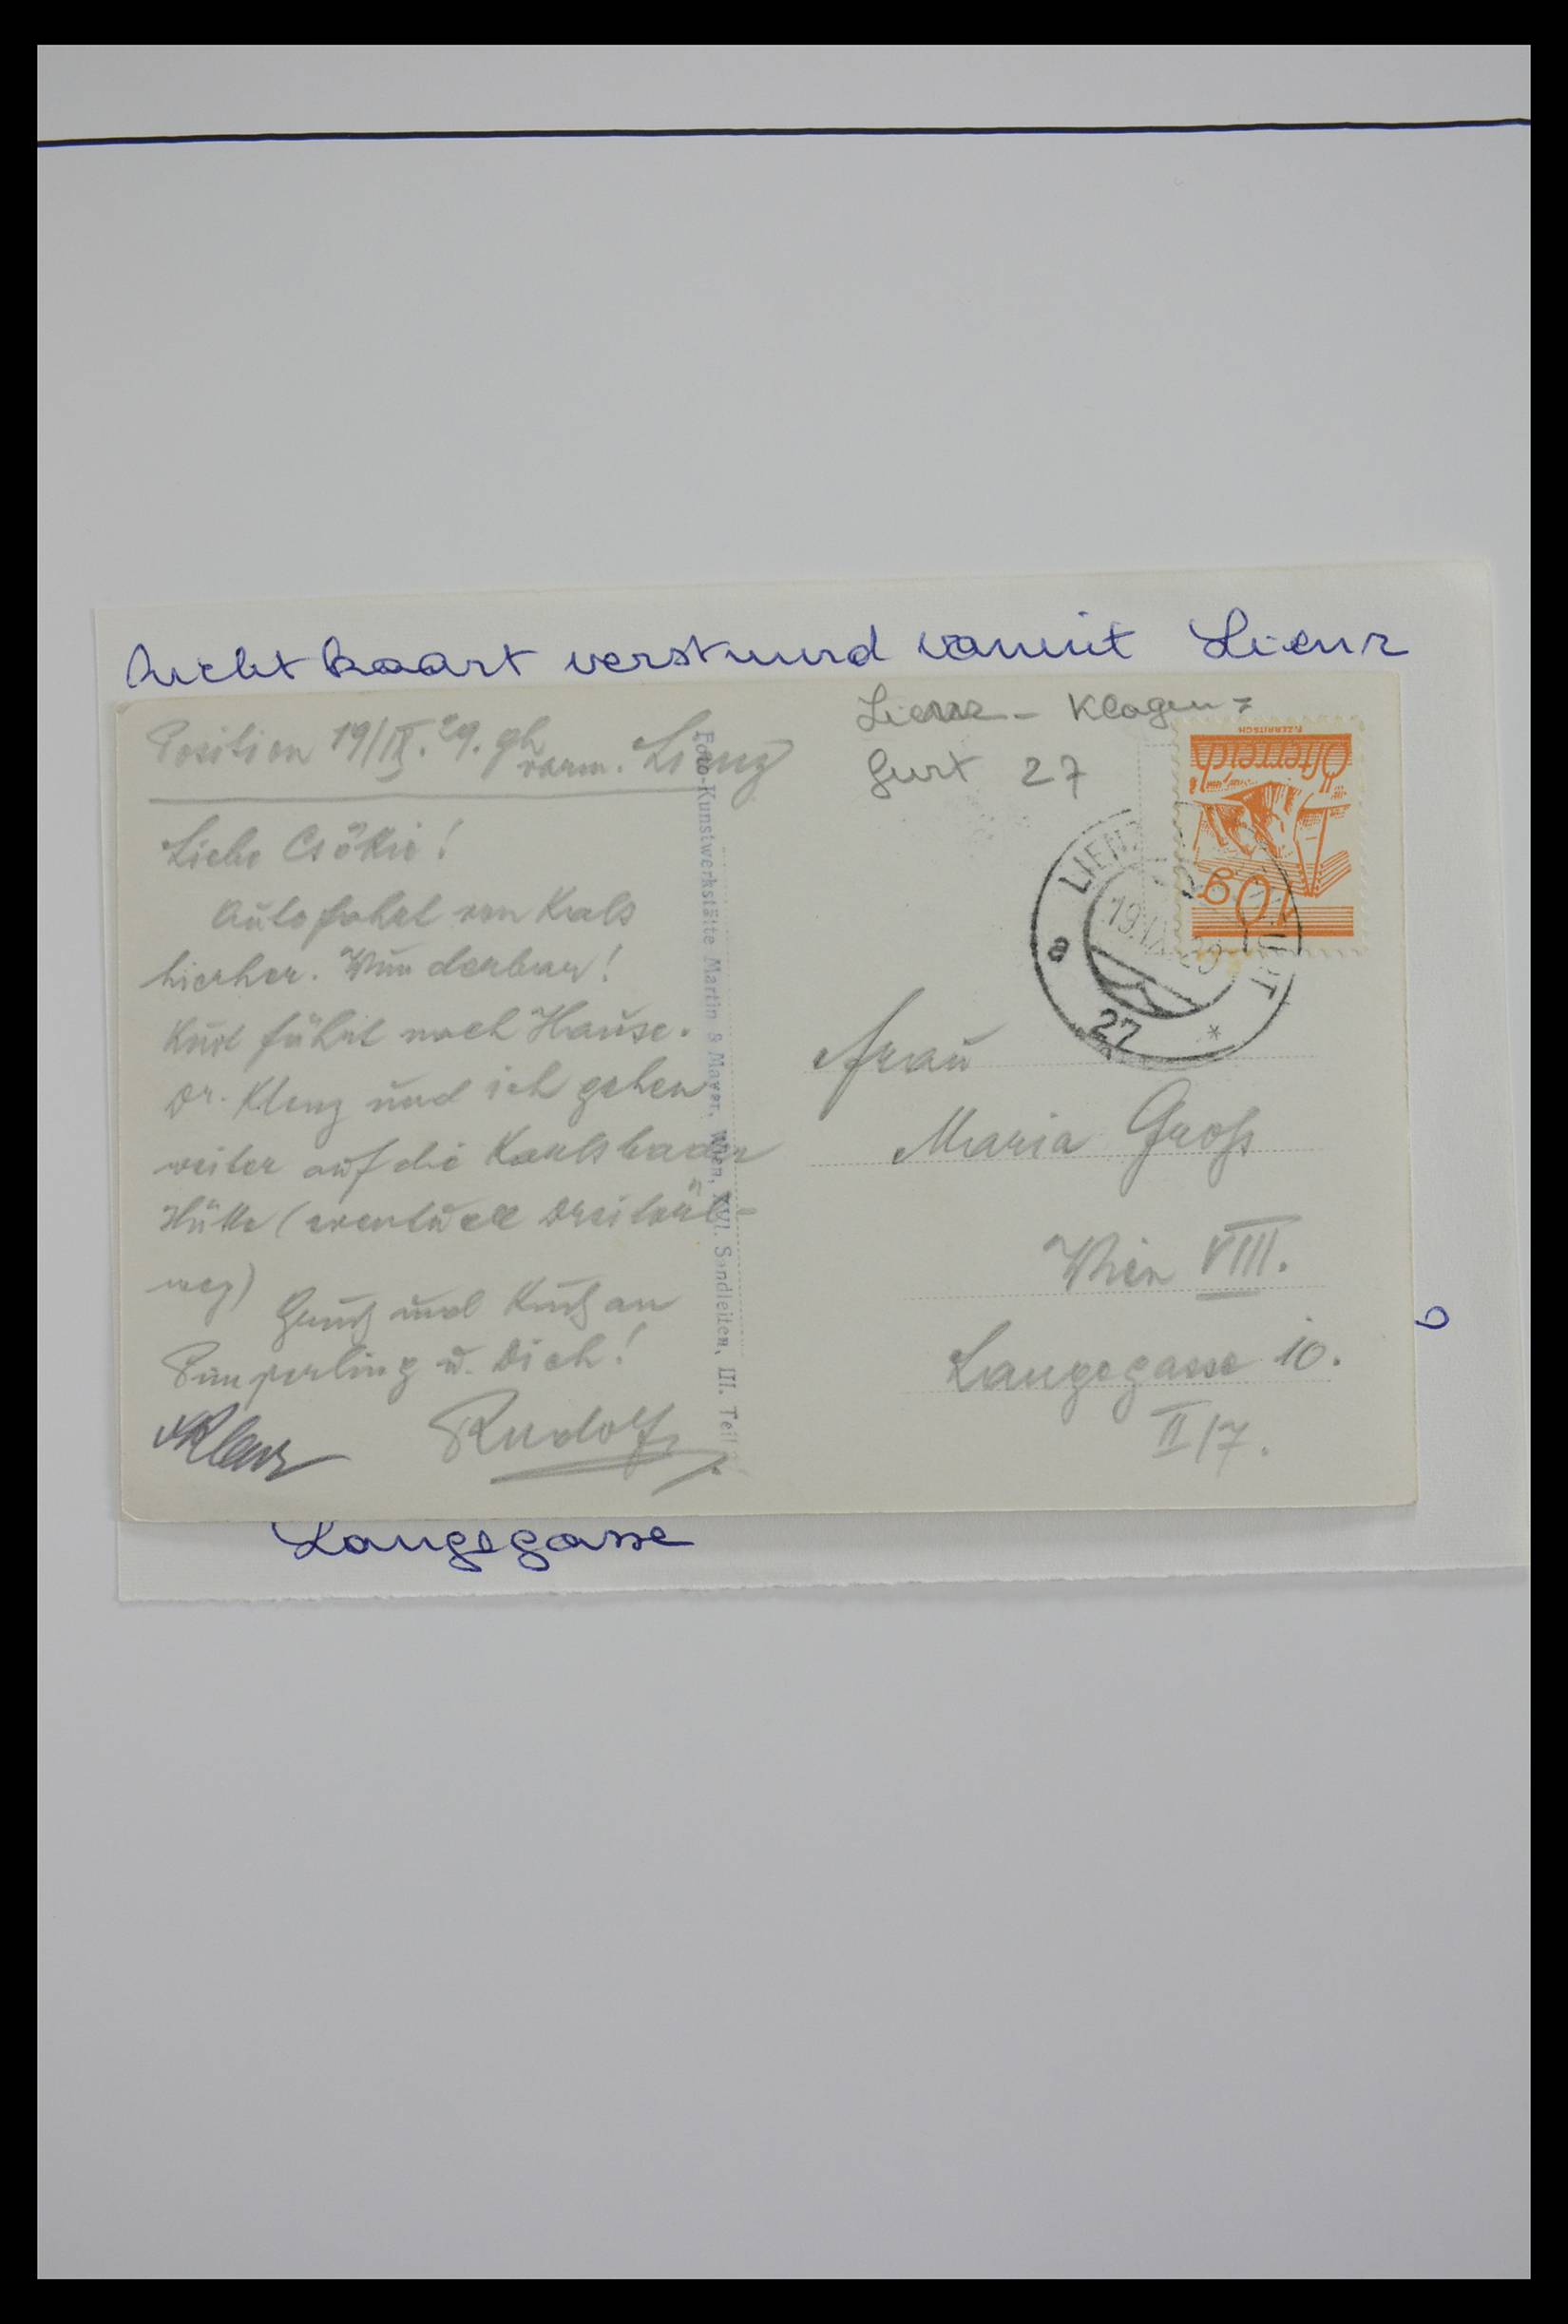 Zichtkaart verstuurd vanuit Lienz
Position 19/IX.29. 9h vorm. Lienz
Liebe Csöki!
Autofahrt von Kals
hierher. Wunderbar!
Kurt fährt nach Hause.
Dr. Klenz und ich gehen
weiter auf die Karlsbader
Hütte (eventuell Dreitörl-
weg)
Gruß und Kuß an
u. Dich!
Rudolf
Foto-Kunstwerkstätte Martin S Mayer, Wien, XVI. Sandleiten, III. Teil
Lienz - Klagen=
furt 27
F. ZERRITSCH
Österreich
10g
LIENZ
19.IX.29
a
27 *
Frau
Maria Groß
Wien VIII.
Langegasse 10.
II/7.
Langegasse